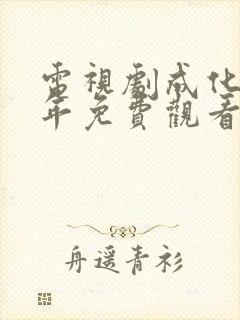 電視劇成化
年免費觀看
舟遥青衫